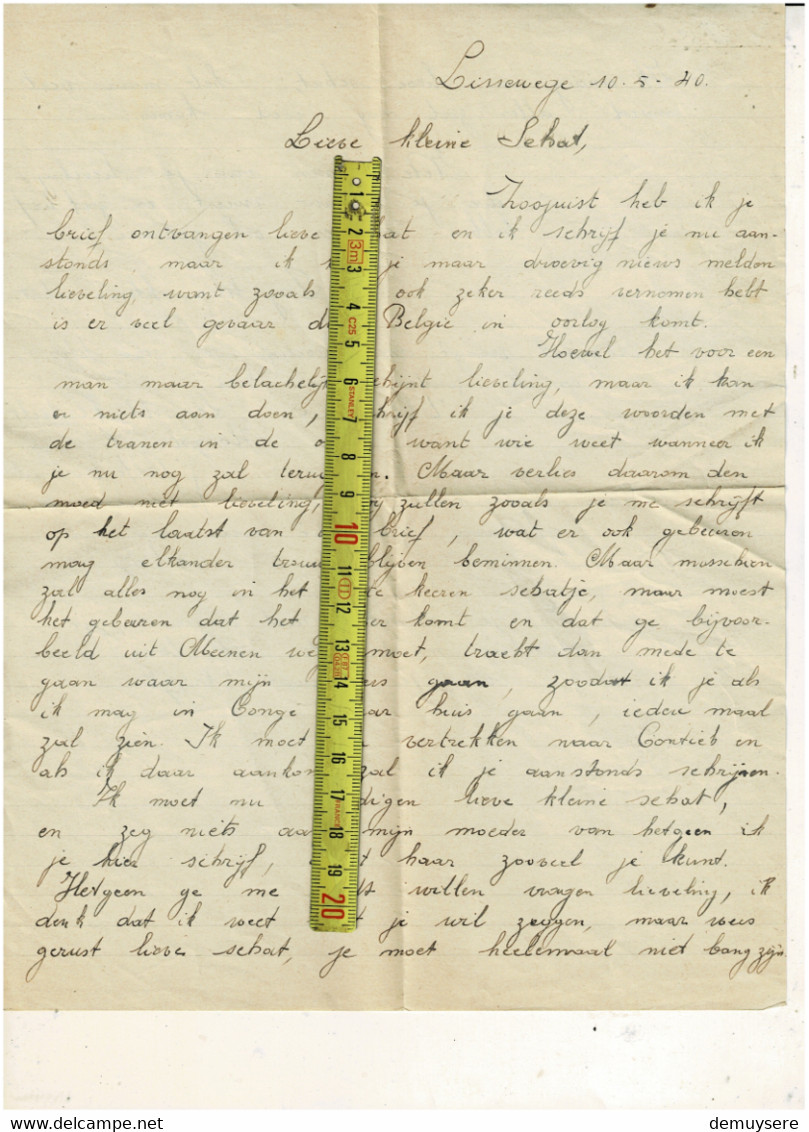 Lissewege 10-5-40.
Lieve kleine Schat,
Zoojuist heb ik je
brief ontvangen lieve hat en ik schrijf je nu aan-
stonds maar ik je maar droevig nieuws melden
lieveling, want zooals ook zeker reeds vernomen hebt
is er veel gevaar d België in oorlog komt.
Hoewel het voor een
man maar belachelij chijnt lieveling, maar ik kan
er niets aan doen, hrijf ik je deze woorden met
de tranen in de o want wie weet wanneer ik
je nu nog zal teru n. Maar verlies daarom den
moed niet lieveling, ij zullen zooals je me schrijft
op het laatst van brief, wat er ook gebeuren
mag elkander trouw blijven beminnen. Maar misschien
zal alles nog in het te keeren schatje, maar moest
het gebeuren dat het er komt en dat ge bijvoor-
beeld uit Meenen we moet, tracht dan mede te
gaan waar mijn rs gaan, zoodat ik je als
ik mag in Congé aar huis gaan, iederen maal
zal zien. Ik moet vertrekken naar Contich en
als ik daar aankom zal ik je aanstonds schrijven.
Ik moet nu digen lieve kleine schat,
en zeg niets aa mijn moeder van hetgeen ik
je hier schrijf, t haar zooveel je kunt.
Hetgeen ge me ds willen vragen lieveling, ik
denk dat ik weet t je wil zeggen, maar wees
gerust lieve schat, je moet heelemaal niet bang zijn
1
2
3m
3
4
C25
5
6
STANLEY
7
8
9
10
11
12
13
14
15
16
17
FRANCE
18
19
20
delcampe.net
demuysere